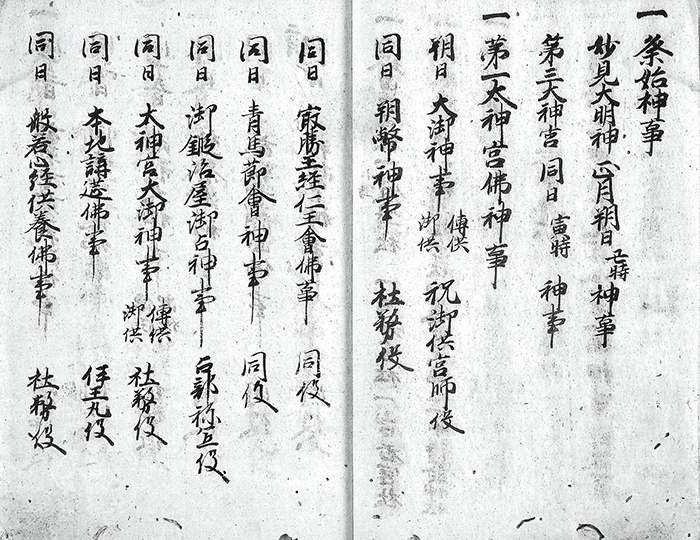 一 祭始神事
妙見大明神 正月朔日 亡時 神事
第三大神宮 同日 寅時 神事
一 第一太神宮佛神事
朔日 大御神事 傳供 御供 祝御供宮師役
同日 朔幣神事 社務役
同日 最勝王経仁王會佛事 同役
同日 青馬節會神事 同役
同日 御鍛冶屋御占神事 占部祢宜役
同日 大神宮大御神事 傳供 御供 社務役
同日 本地講造佛事 伊王丸役
同日 般若心経供養佛事 社務役